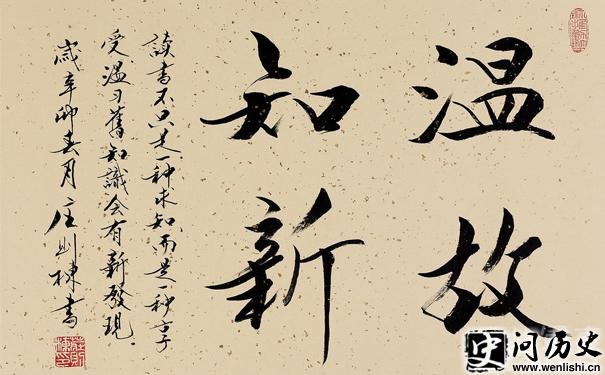 温故
知新
讀書不只是一种求知而是一种享
受温习舊知識会有新發現.
歲辛卯春月庄则棟書
史
问历史
www.wenlishi.cn